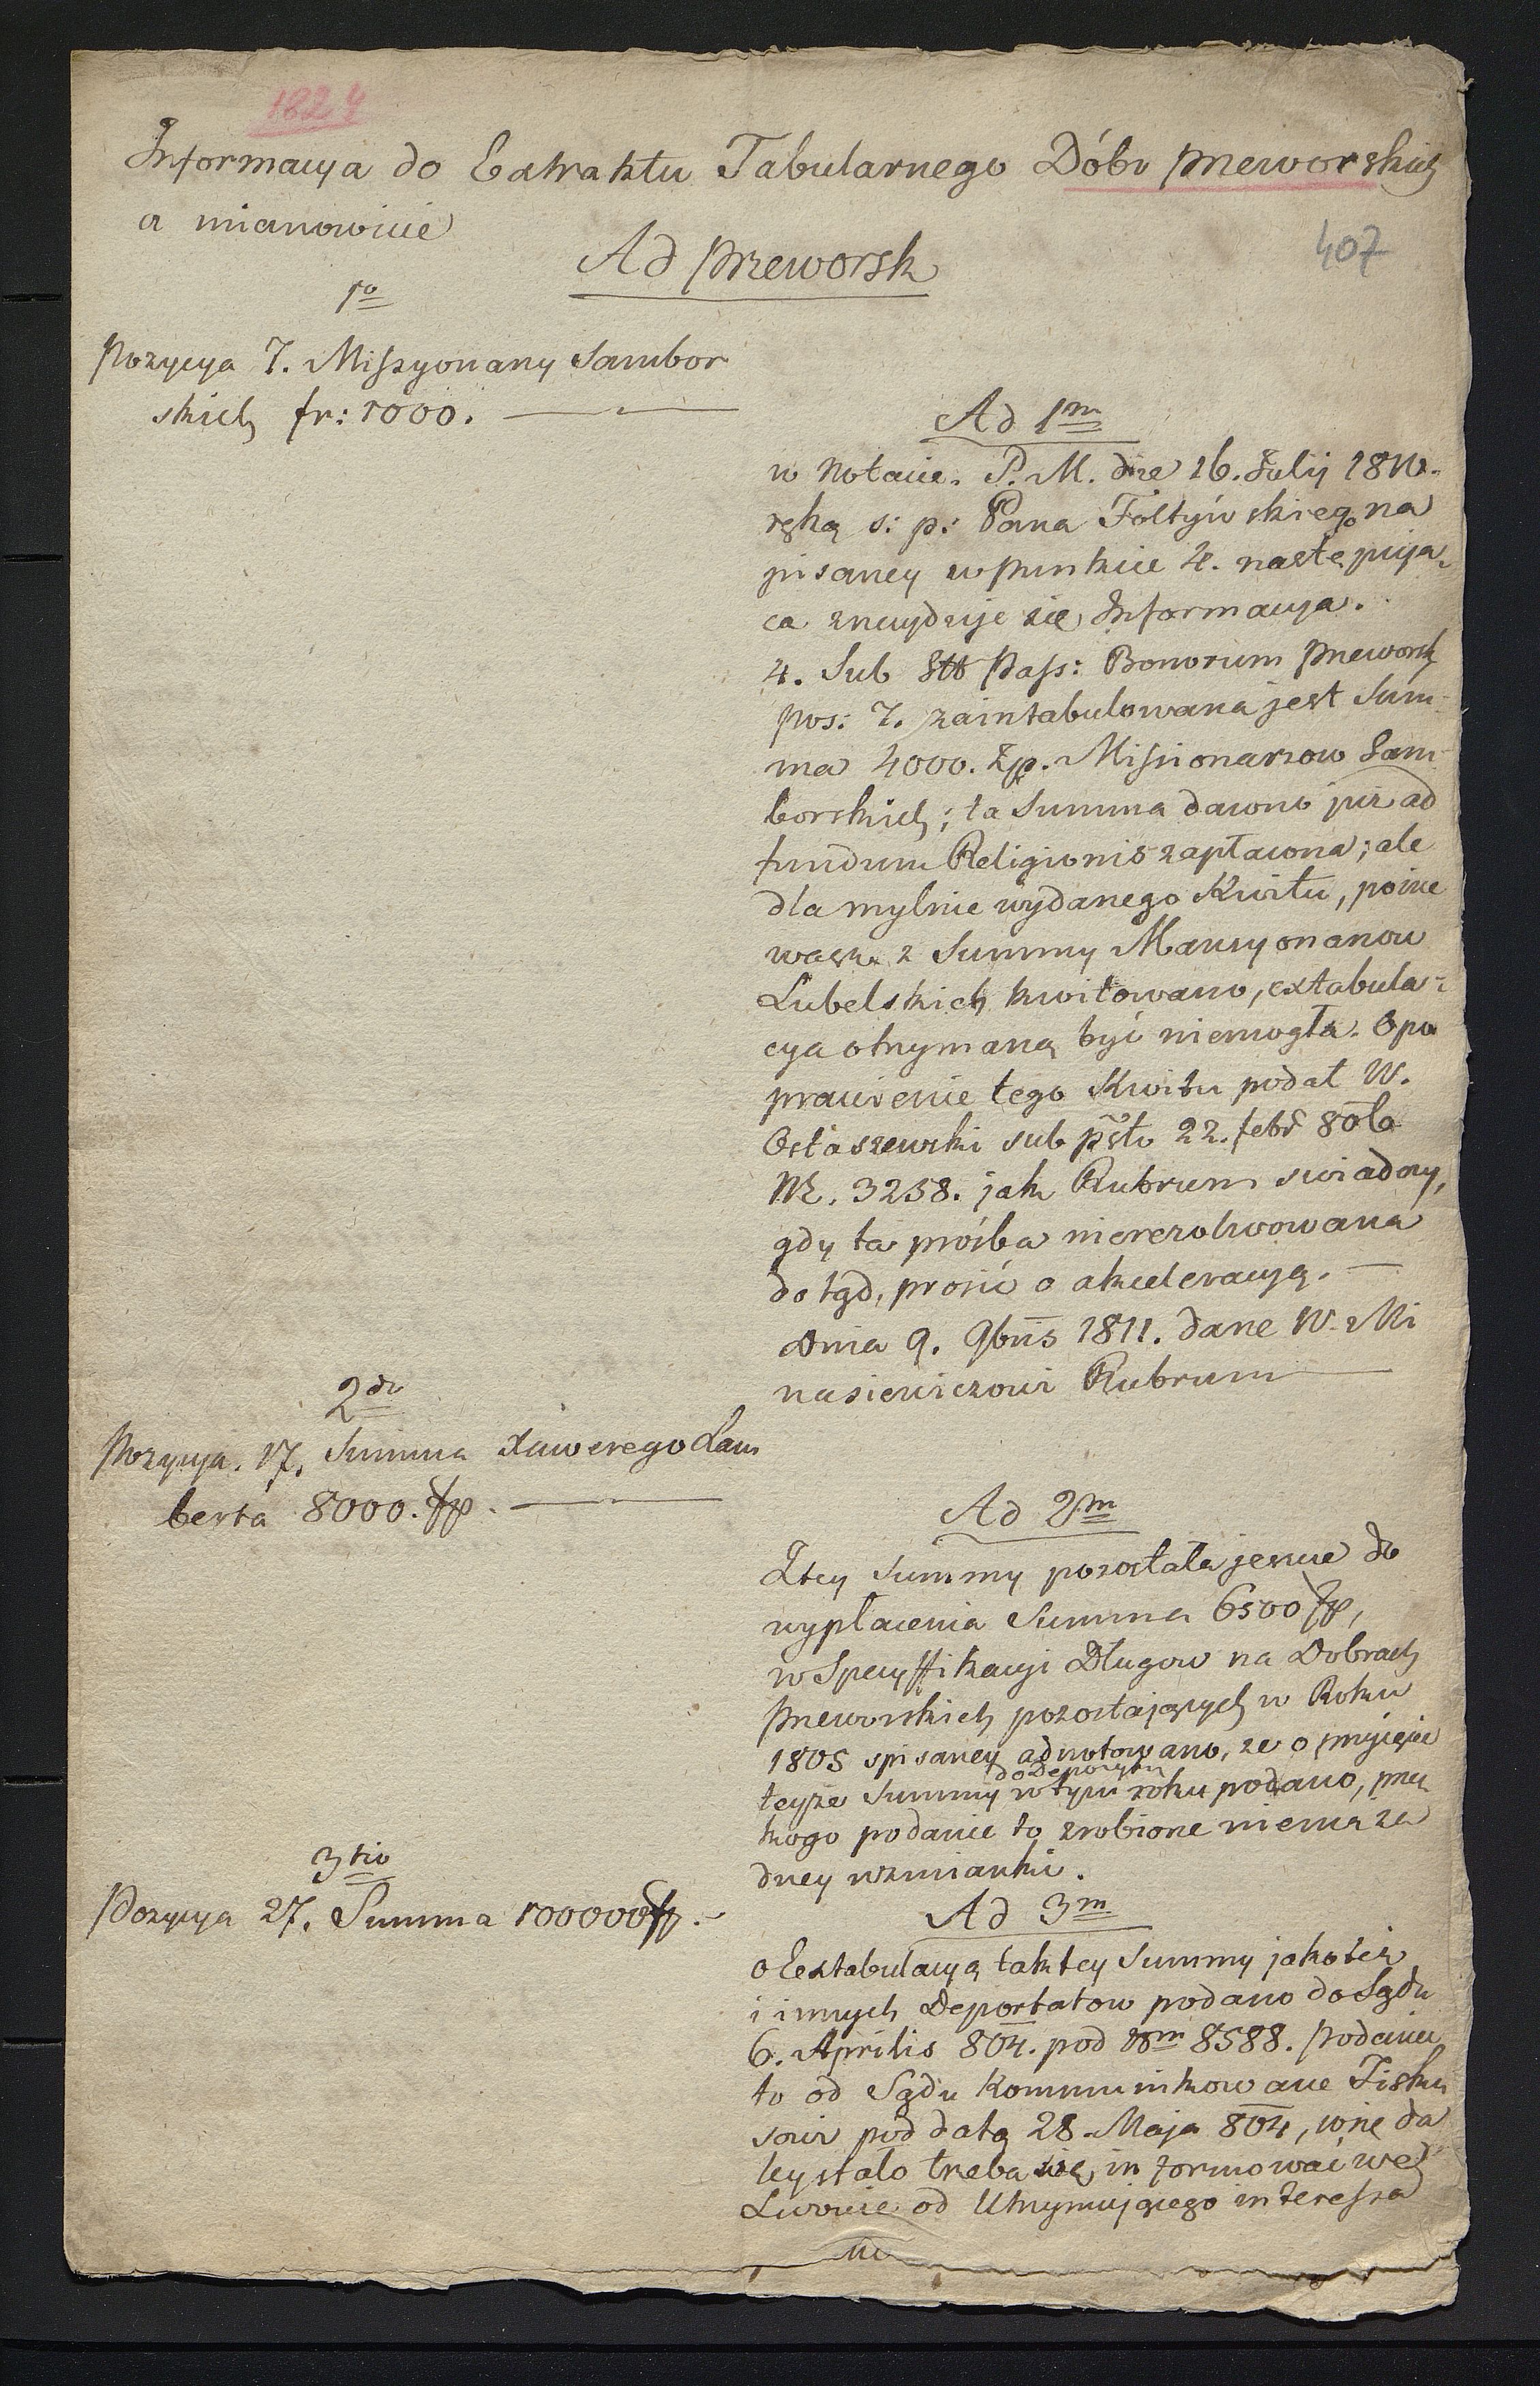 1824
Informacya do Extraktu Tabularnego Dóbr Przeworskich
a mianowicie
407
Ad Przeworsk
1o
Pozycya 7. Missyonarzy Sambor
skich fr: 1000.
Ad 1m
w Notacie. P. M. die 16. Julij 1810.
ręką s: p: Pana Fołtyńskiego na
pisaney w punkcie 4. następują,
ca znayduje się Informacya.
4. Sub Stt Pass: Bonorum Przeworsk
pos: 7. zaintabulowana jest Sum-
ma 4000. Zp. Missionarzow Sam-
borskich; ta Summa dawno już ad
fundum Religionis zapłacona; ale
dla mylnie wydanego Kwitu, ponie
waż z Summy Mansyonarzow
Lubelskich kwitowano, extabula-
cya otrzymaną być niemogła. O po
prawienie tego Kwitu podał W.
Ostaszewski sub psto 22. febr
Nr. 3258. jak Rubrum swiadczy,
gdy ta prośba nierezolwowana
dotąd, prosić o akceleracyą.
Dnia 9. 9bris 1811. dane W. Mi
nasiewiczowi Rubrum
2do
Pozycya. 17. Summa Xawerego Lam
berta 8000. fp.
Ad 2m
Ztey Summy pozostała jeszcze do
wypłacenia Summa 6500 fp,
w Specyffikacyi Długow na Dobrach
Przeworskich pozostających w Roku
1805 spisaney adnotowano, ze o przyięcie
do Depozytu
teyże Summy w tym roku podano, przez
kogo podanie to zrobione niema ża
dney wzmianki.
3tio
Pozycya 27. Summa 100000 fp.
Ad 3m
o Extabulacyą tak tey Summy jakoteż
i innych Deportatow podano do Sądu
6. Aprilis 804. pod Nrm 8588. Podanie
to od Sądu kommunikowane Fisku
sowi pod datą 28. Maja 804, co się da
ley stało trzeba się informować we
Lwowie od Utrzymującego interessa